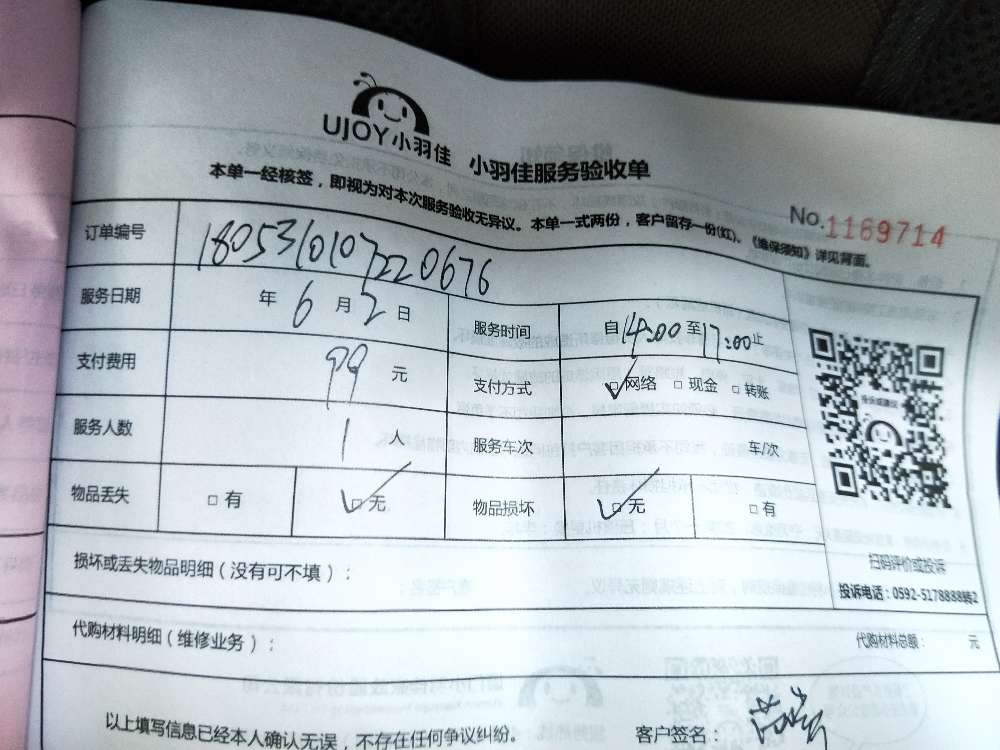 UJOY小羽佳 小羽佳服务验收单
本单一经核签，即视为对本次服务验收无异议。本单一式两份，客户留存一份(红)。《维保须知》详见背面。
No.1169714
订单编号 1805310107220676
服务日期 年 6 月 2 日 服务时间 自14:00至17:00止
支付费用 99 元 支付方式 ☑网络 □现金 □转账
服务人数 1 人 服务车次 车/次
物品丢失 □有 ☑无 物品损坏 ☑无 □有
扫码评价或投诉
投诉电话：0592-5178888转2
损坏或丢失物品明细（没有可不填）：
代购材料明细（维修业务）： 代购材料总额： 元
以上填写信息已经本人确认无误，不存在任何争议纠纷。 客户签名：